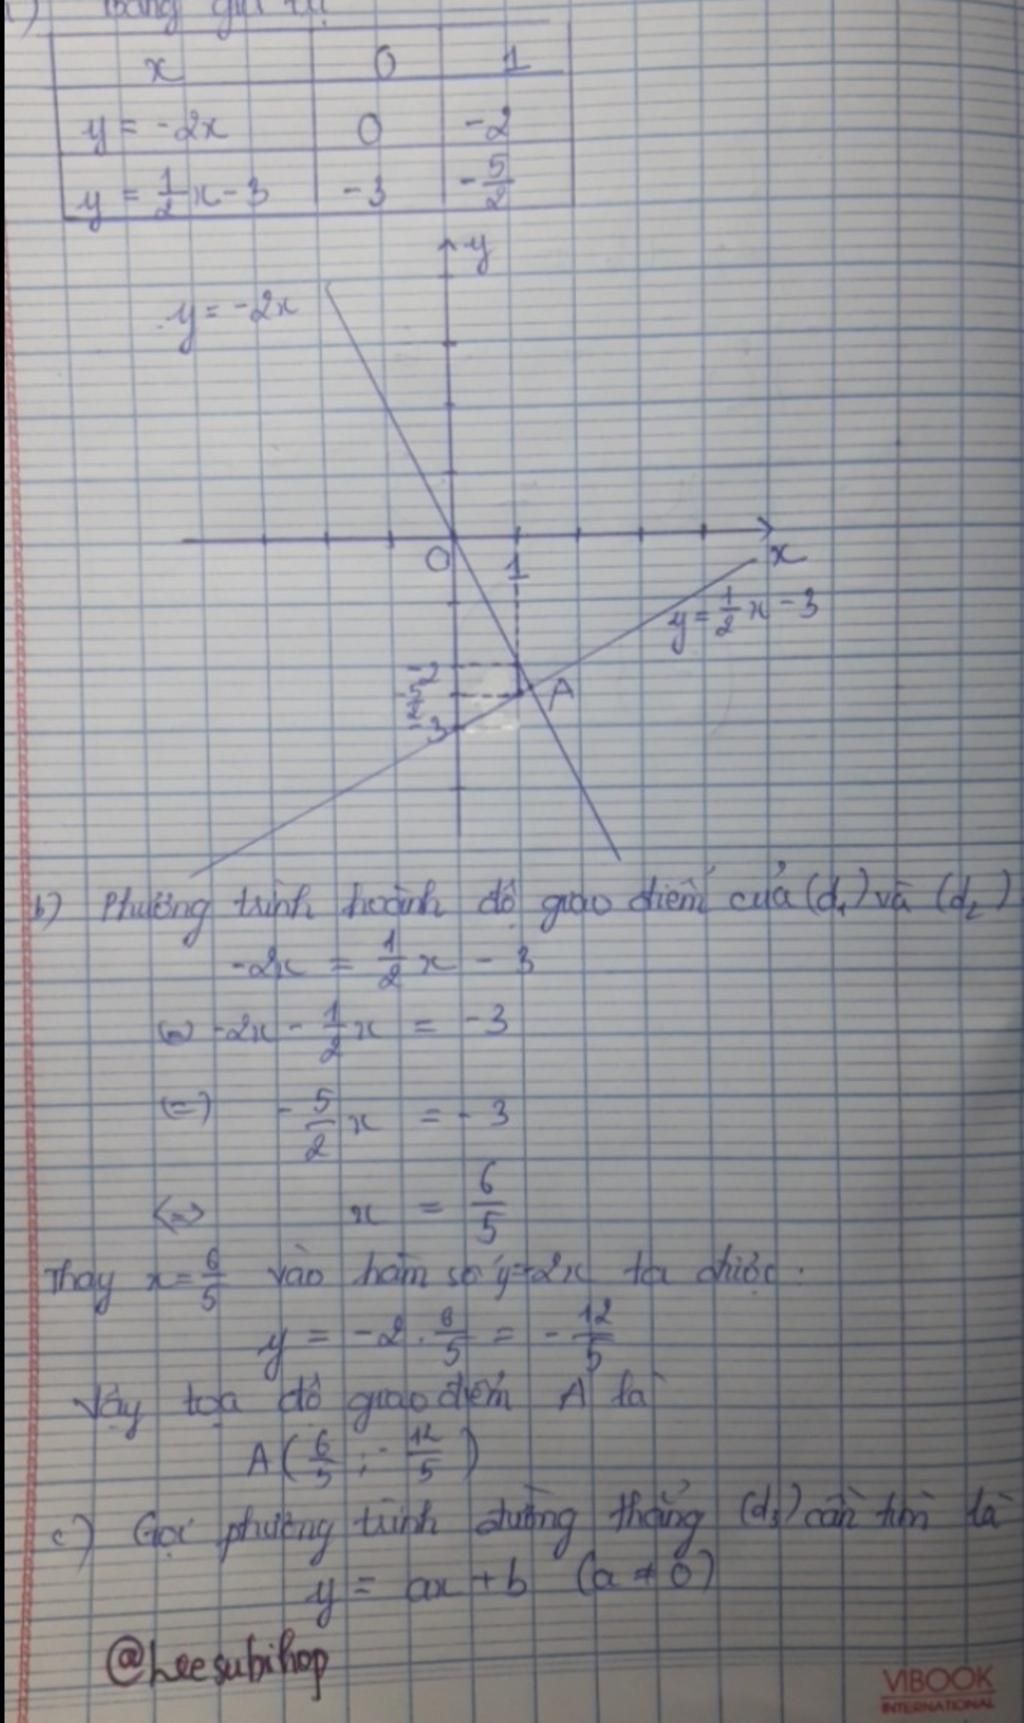 ) Bảng giá trị
x 0 1
y = -2x 0 -2
y = 1/2 x - 3 -3 -5/2
y
y = -2x
O 1 x
y = 1/2 x - 3
-2
A
-5/2
-3
b) Phương trình hoành độ giao điểm của (d₁) và (d₂)
-2x = 1/2 x - 3
(=) -2x - 1/2 x = -3
(=) -5/2 x = -3
<=> x = 6/5
Thay x = 6/5 vào hàm số y=-2x ta được:
y = -2 . 6/5 = -12/5
Vậy tọa độ giao điểm A là
A ( 6/5 ; -12/5 )
c) Gọi phương trình đường thẳng (d₃) cần tìm là
y = ax + b (a ≠ 0)
@Leesubihop
VIBOOK
INTERNATIONAL